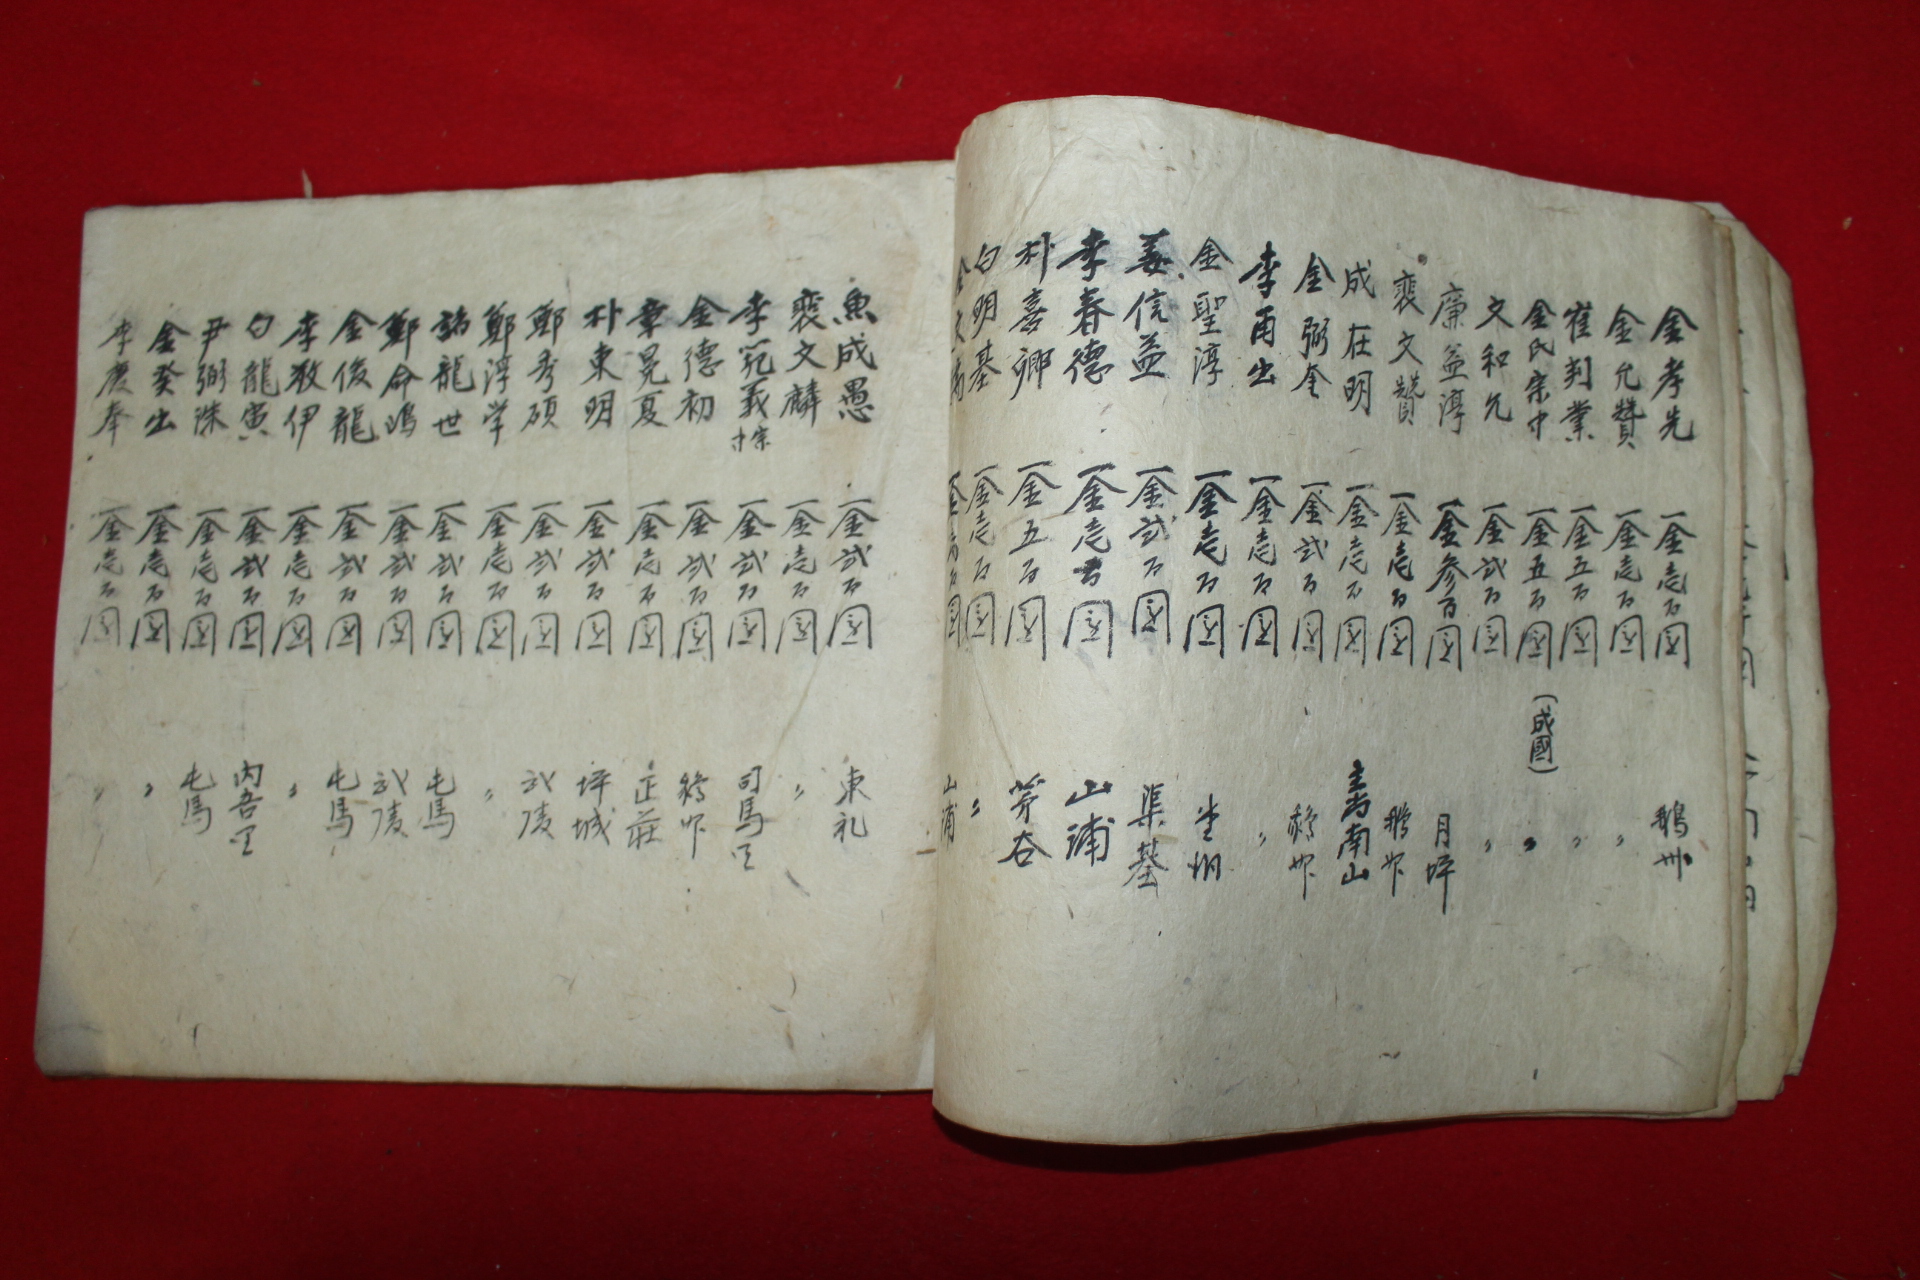 金孝先 一金壱百圓 鵝州
金允賛 一金壱百圓 〃
崔判業 一金五百圓 〃
金氏宗中 一金五百圓 (成國) 〃
文和允 一金弐百圓 〃
廉益淳 一金参百圓 月坪
裵文賛 一金壱百圓
成在明 一金壱百圓 南山
金弼奎 一金弐百圓
李甬出 一金壱百圓 〃
金聖淳 一金壱百圓
姜信益 一金弐百圓 渠基
李春德 一金壱百圓 山浦
朴喜卿 一金五百圓 芳谷
白明基 一金壱百圓 〃
金 百圓 山浦
魚成愚 一金弐百圓 東礼
裵文麟 一金壱百圓 〃
李範義 一金弐百圓 司馬里
金德初 一金弐百圓
章晃夏 一金壱百圓 正莊
朴東明 一金弐百圓 坪城
鄭秀碩 一金弐百圓 武陵
鄭淳学 一金壱百圓 〃
諸龍世 一金弐百圓 屯馬
鄭命鴻 一金弐百圓 武陵
金俊龍 一金弐百圓 屯馬
李敎伊 一金壱百圓 〃
白龍寅 一金弐百圓 内吾里
尹弼洙 一金壱百圓 屯馬
金癸出 一金壱百圓 〃
李慶奉 一金壱百圓 〃